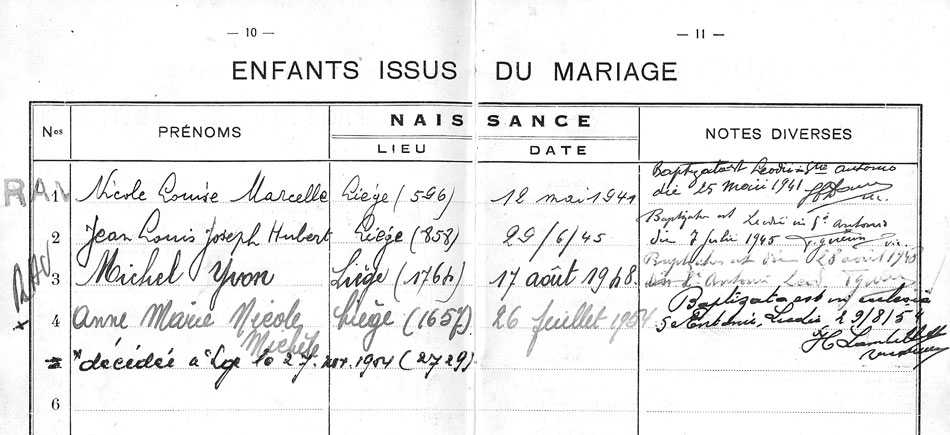 — 10 —
— 11 —
ENFANTS ISSUS DU MARIAGE
Nos PRÉNOMS NAISSANCE NOTES DIVERSES
LIEU DATE
RAN
1 Nicole Louise Marcelle Liège (596) 12 mai 1941 Baptizata est Leodii in Antonio
die 25 Maii 1941
2 Jean Louis Joseph Hubert Liège (858) 29/6/45 Baptizatus est Leodii in St Antonio
die 7 Julii 1945
3 Michel Yvon Liège (1764) 17 août 1948. Baptizatus est die 28 août 1948
St Antonii Leod.
4 Anne Marie Nicole Liège (1657) 26 juillet 1954 Baptizata est in
Michèle
S Antonii, Leodii 29/8/54
H Lambrecht
5 *décédée à Lge le 27. nov. 1954 (2729)
6